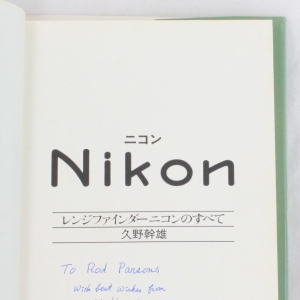 ニコン
Nikon
レンジファインダーニコンのすべて
久野幹雄
To Rod Parsons
With best wishes from